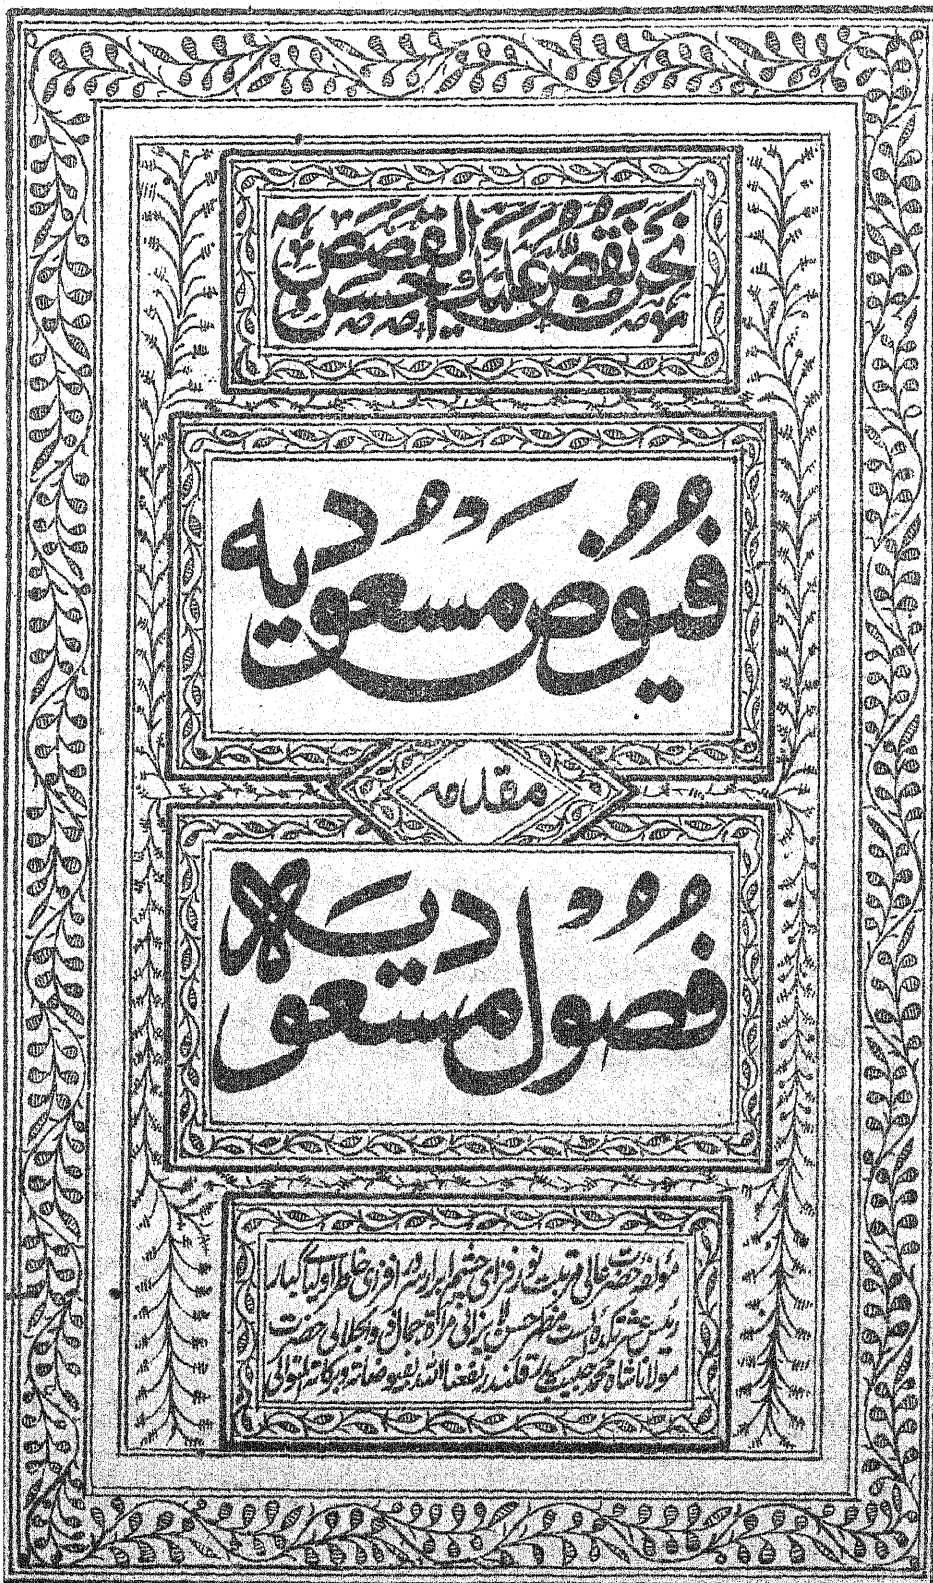 نحن نقص عليك احسن القصص
فیوض مسعودیہ
مقدمہ
فصول مسعودیہ
مؤلفہ حضرت عالی مرتبت نور افزای چشم ابرار سرور افزای خاطر اولیای کبار
رئیس عشرتکدہ مظہر حسن لایزالی مرآۃ جمالی والجلالی حضرت
مولانا شاہ محمد حبیب حیدر قلندر نفعنا اللہ بفیوضاتہ وبرکاتہ المتوالی